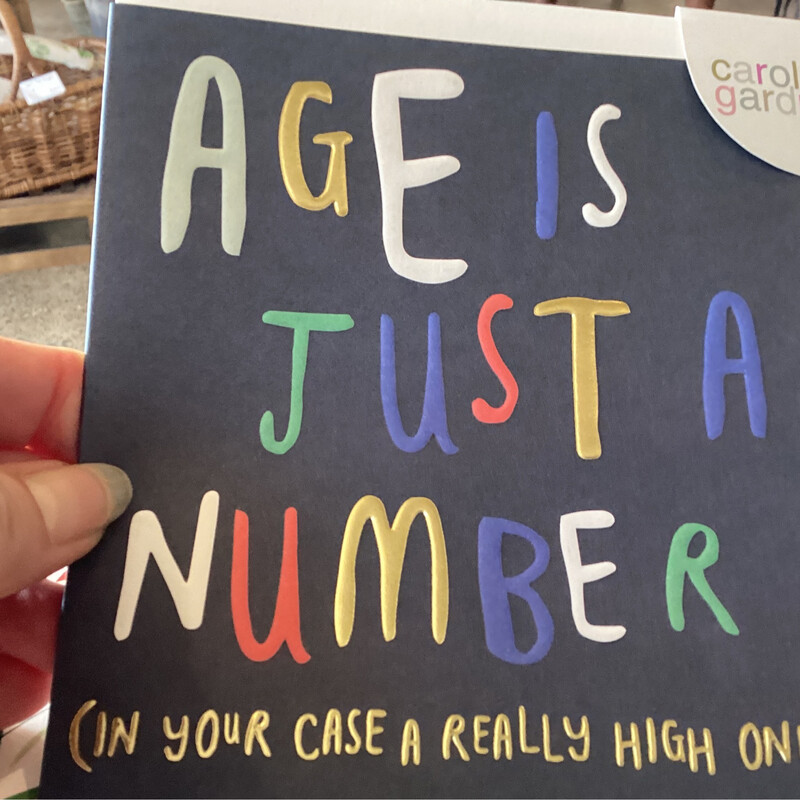 carol
gard
AGE IS
JUST A
NUMBER
(IN YOUR CASE A REALLY HIGH ON